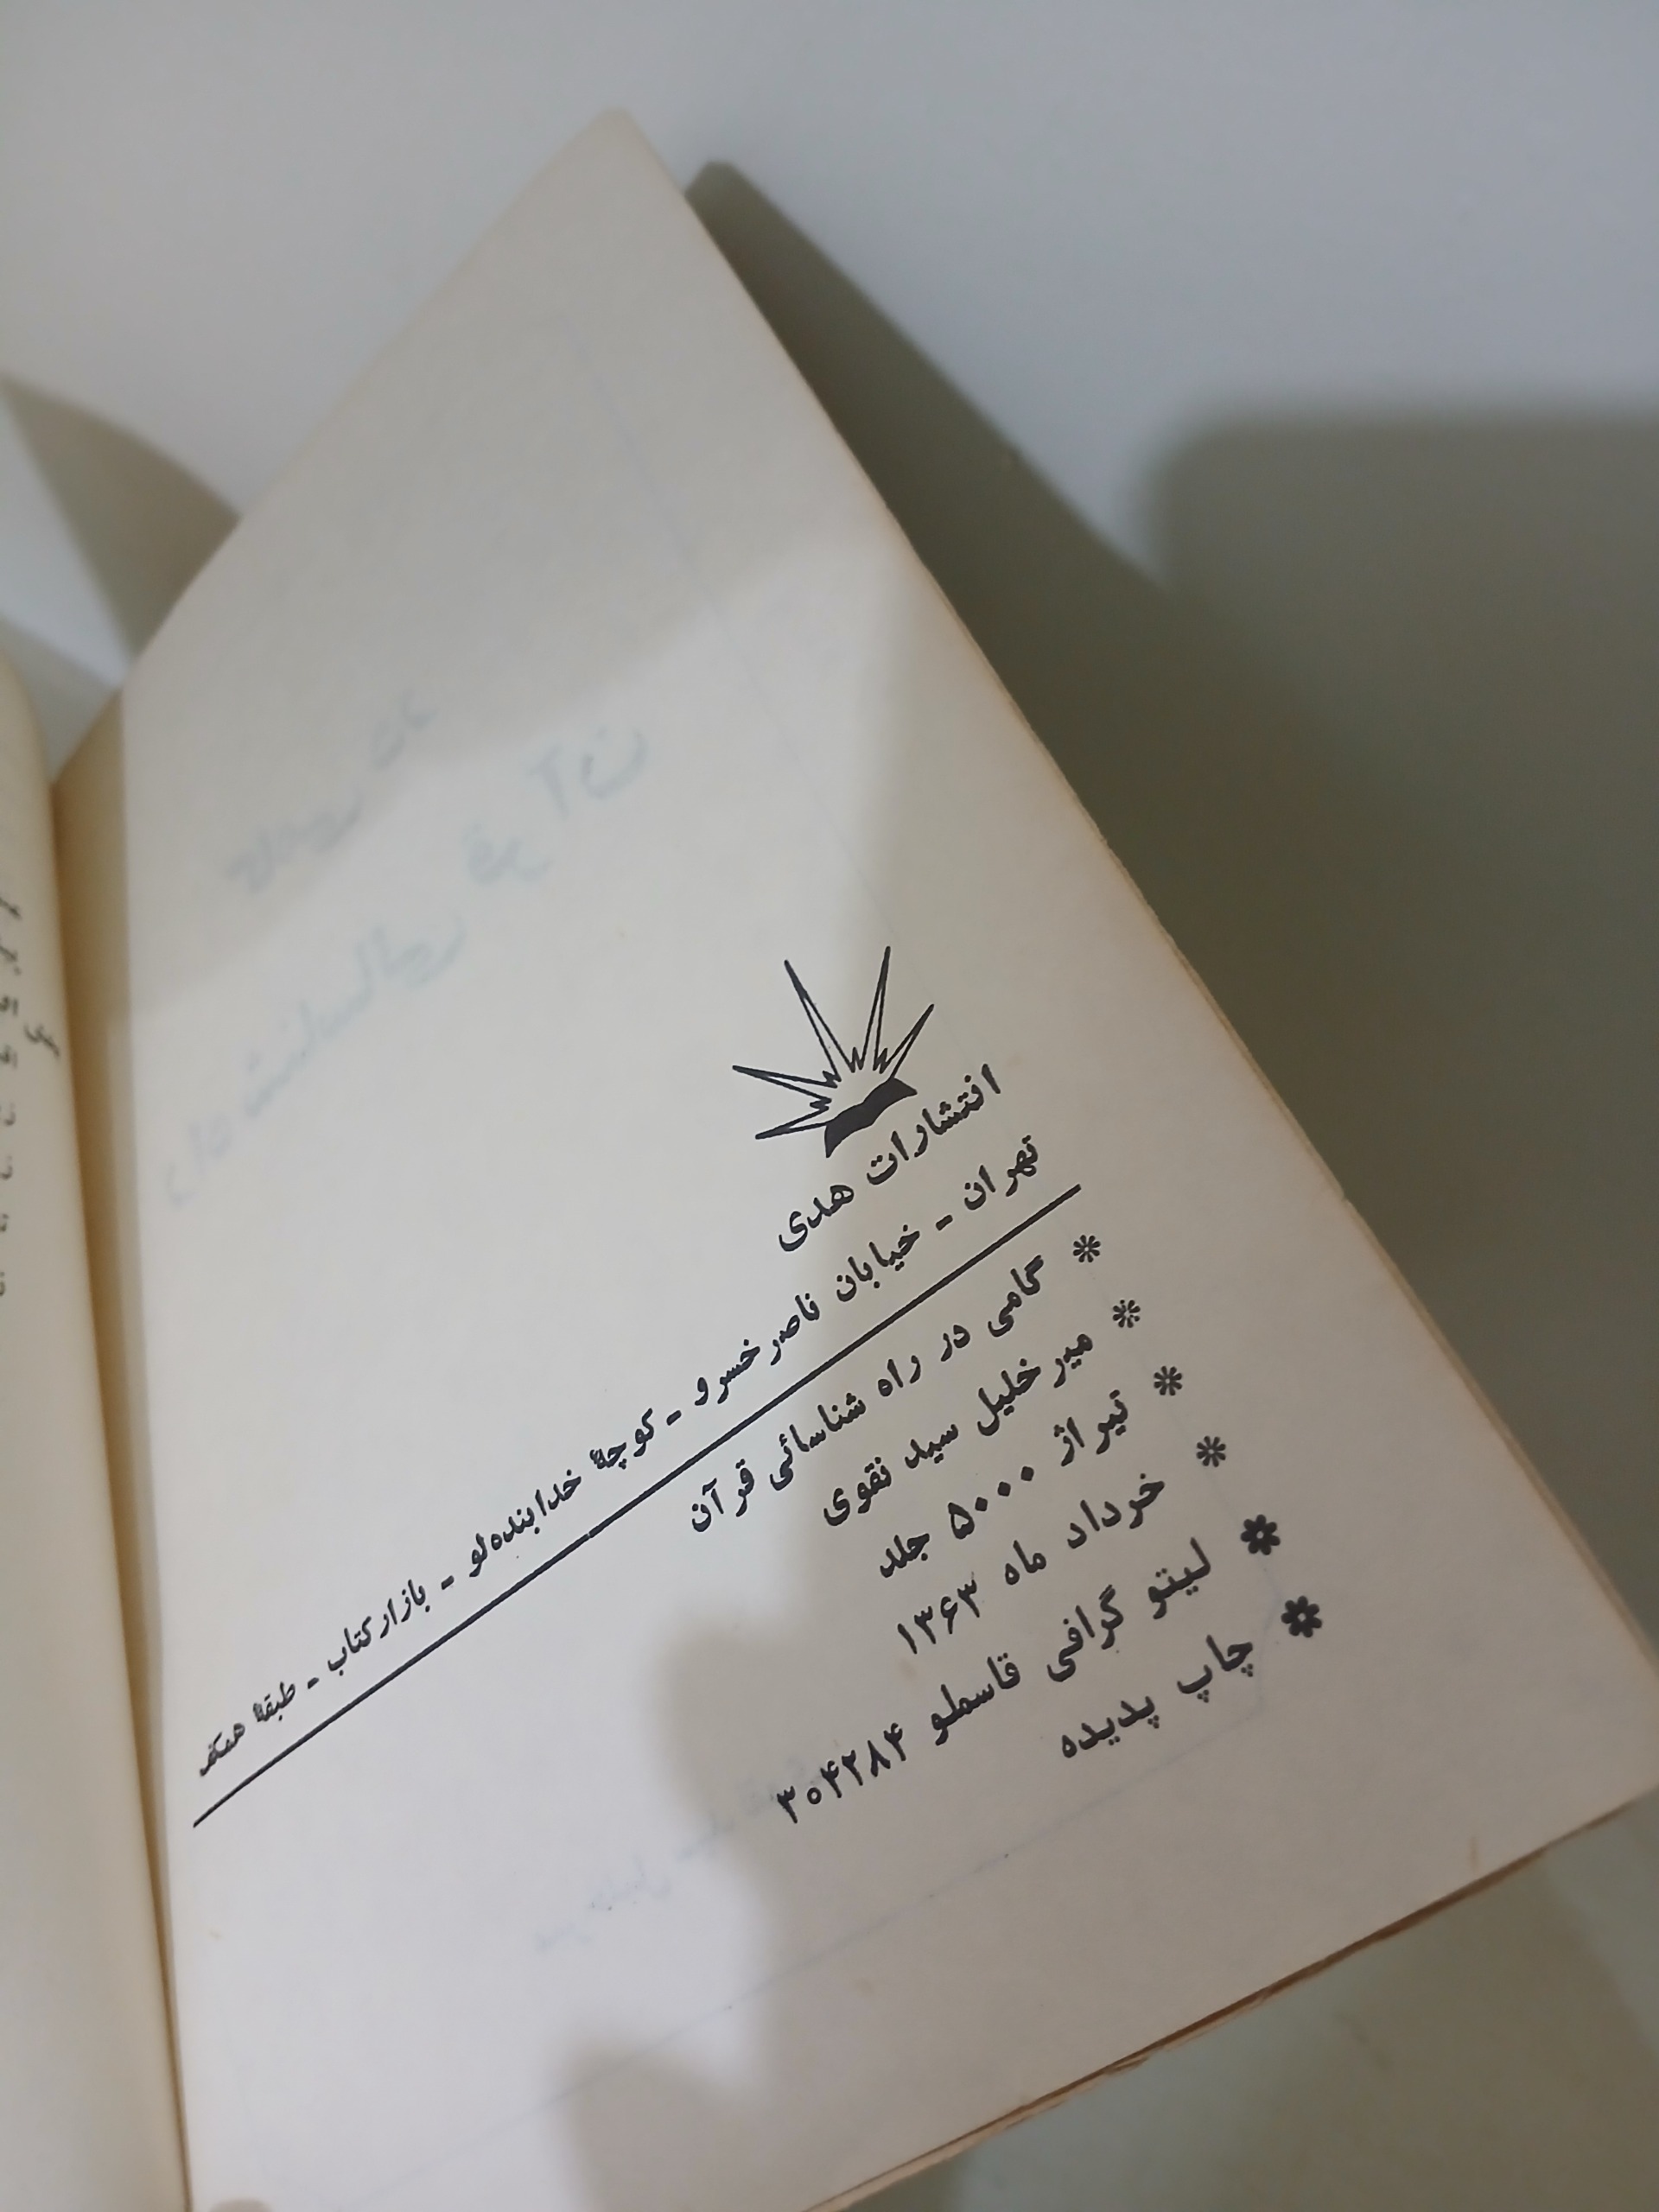 انتشارات هدی
تهران - خیابان ناصر خسرو - کوچهٔ خدابنده‌لو - بازار کتاب - طبقهٔ همکف
* گامی در راه شناسائی قرآن
* میر خلیل سید نقوی
* تیراژ ۵۰۰۰ جلد
* خرداد ماه ۱۳۶۳
* لیتو گرافی قاسملو ۳۰۴۲۸۴
* چاپ پدیده